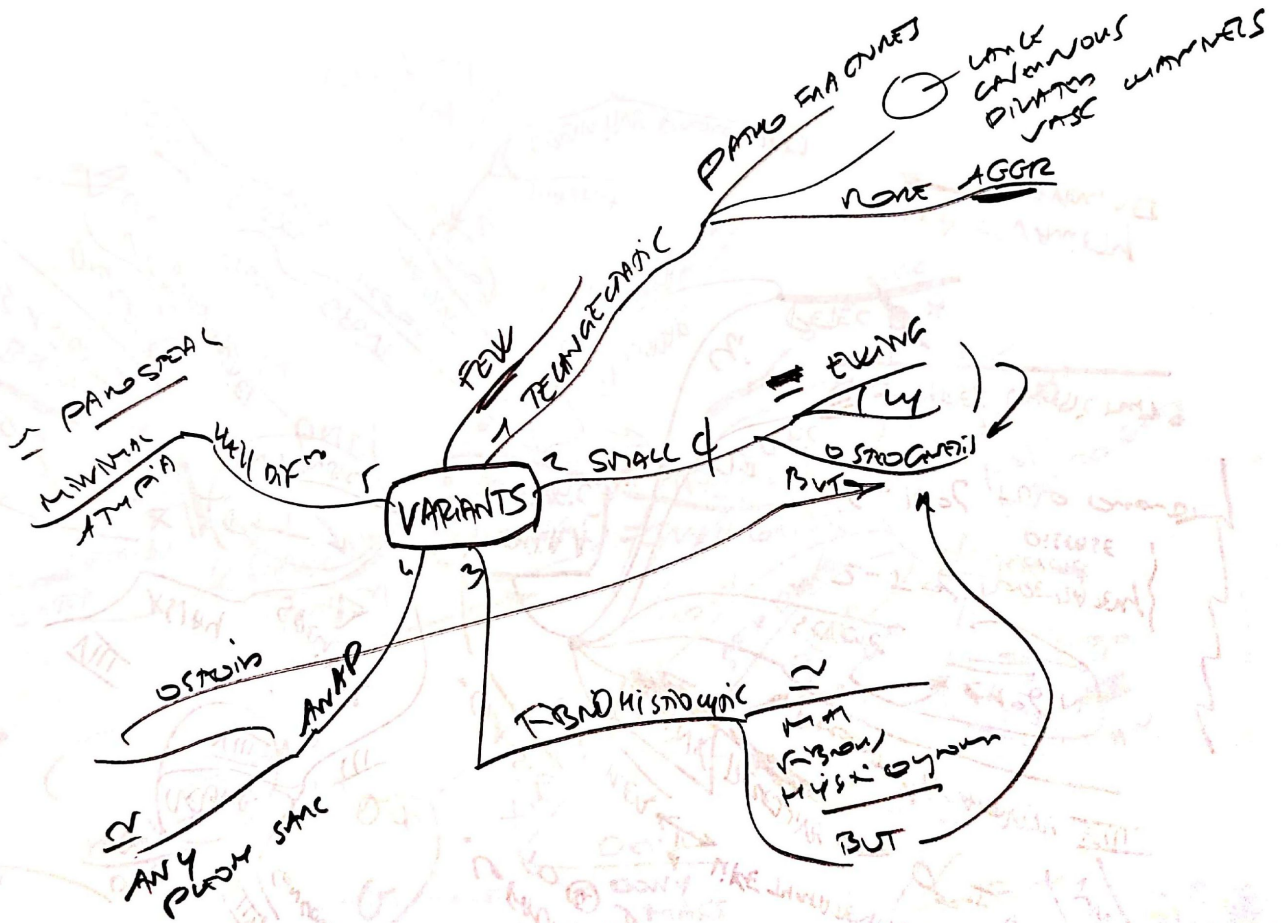 FEW
1 TELANGECTATIC
PATHO FRACTURES
LARGE
CAVERNOUS
DILATED
VASC CHANNELS
MORE AGGR
2 SMALL
= EWING
Ly
OSTEOGNESIS
BUT
VARIANTS
3
FIBROHISTIOCYTIC
≃
FIBROUS
BUT
4 ANAP
OSTEOID
≃
ANY
PLEOM SARC
5 Well DIF
MINIMAL
ATYPIA
≃ PAROSTEAL